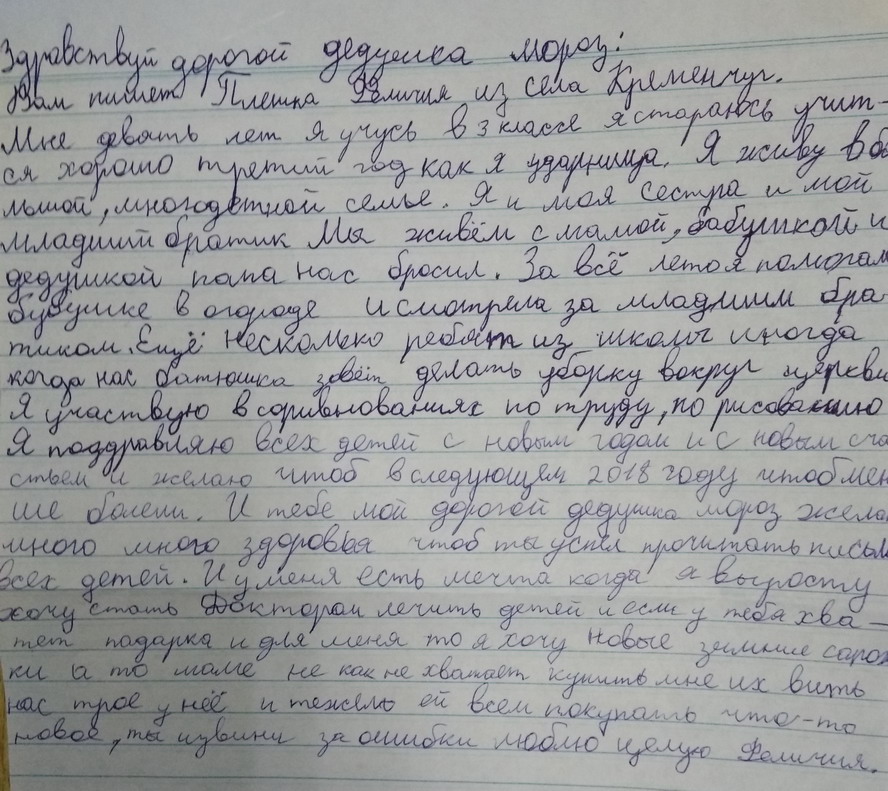 Здравствуй дорогой дедушка мороз!
Вам пишет Плешка Феличия из села Кременчуг.
Мне девять лет я учусь в 3 классе я стараюсь учит-
ся хорошо третий год как я ударница. Я живу в бо
льшой, многодетной семье. Я и моя сестра и мой
младший братик Мы живём с мамой, бабушкой и
дедушкой папа нас бросил. За всё лето я помогала
бубушке в огороде и смотрела за младшим бра-
тиком. Ещё несколько ребят из школы иногда
когда нас батюшка зовёт делать уборку вокруг церкви
Я участвую в соривнованиях по труду, по рисованию
Я поздравляю всех детей с новым годам и с новым сча
стьем и желаю чтоб в следующем 2018 году чтоб мен
ше болели. И тебе мой дорогой дедушка мороз жела
много много здоровья чтоб ты успел прочитать письм
всех детей. И у меня есть мечта когда я выросту
хочу стать Доктором лечить детей и если у тебя хва-
тет падарка и для меня то я хочу новые зимние сапож
ки а то маме не как не хватает купить мне их вить
нас трое у неё и тежело ей всем покупать что-то
новое, ты извини за ошибки люблю целую Феличия.